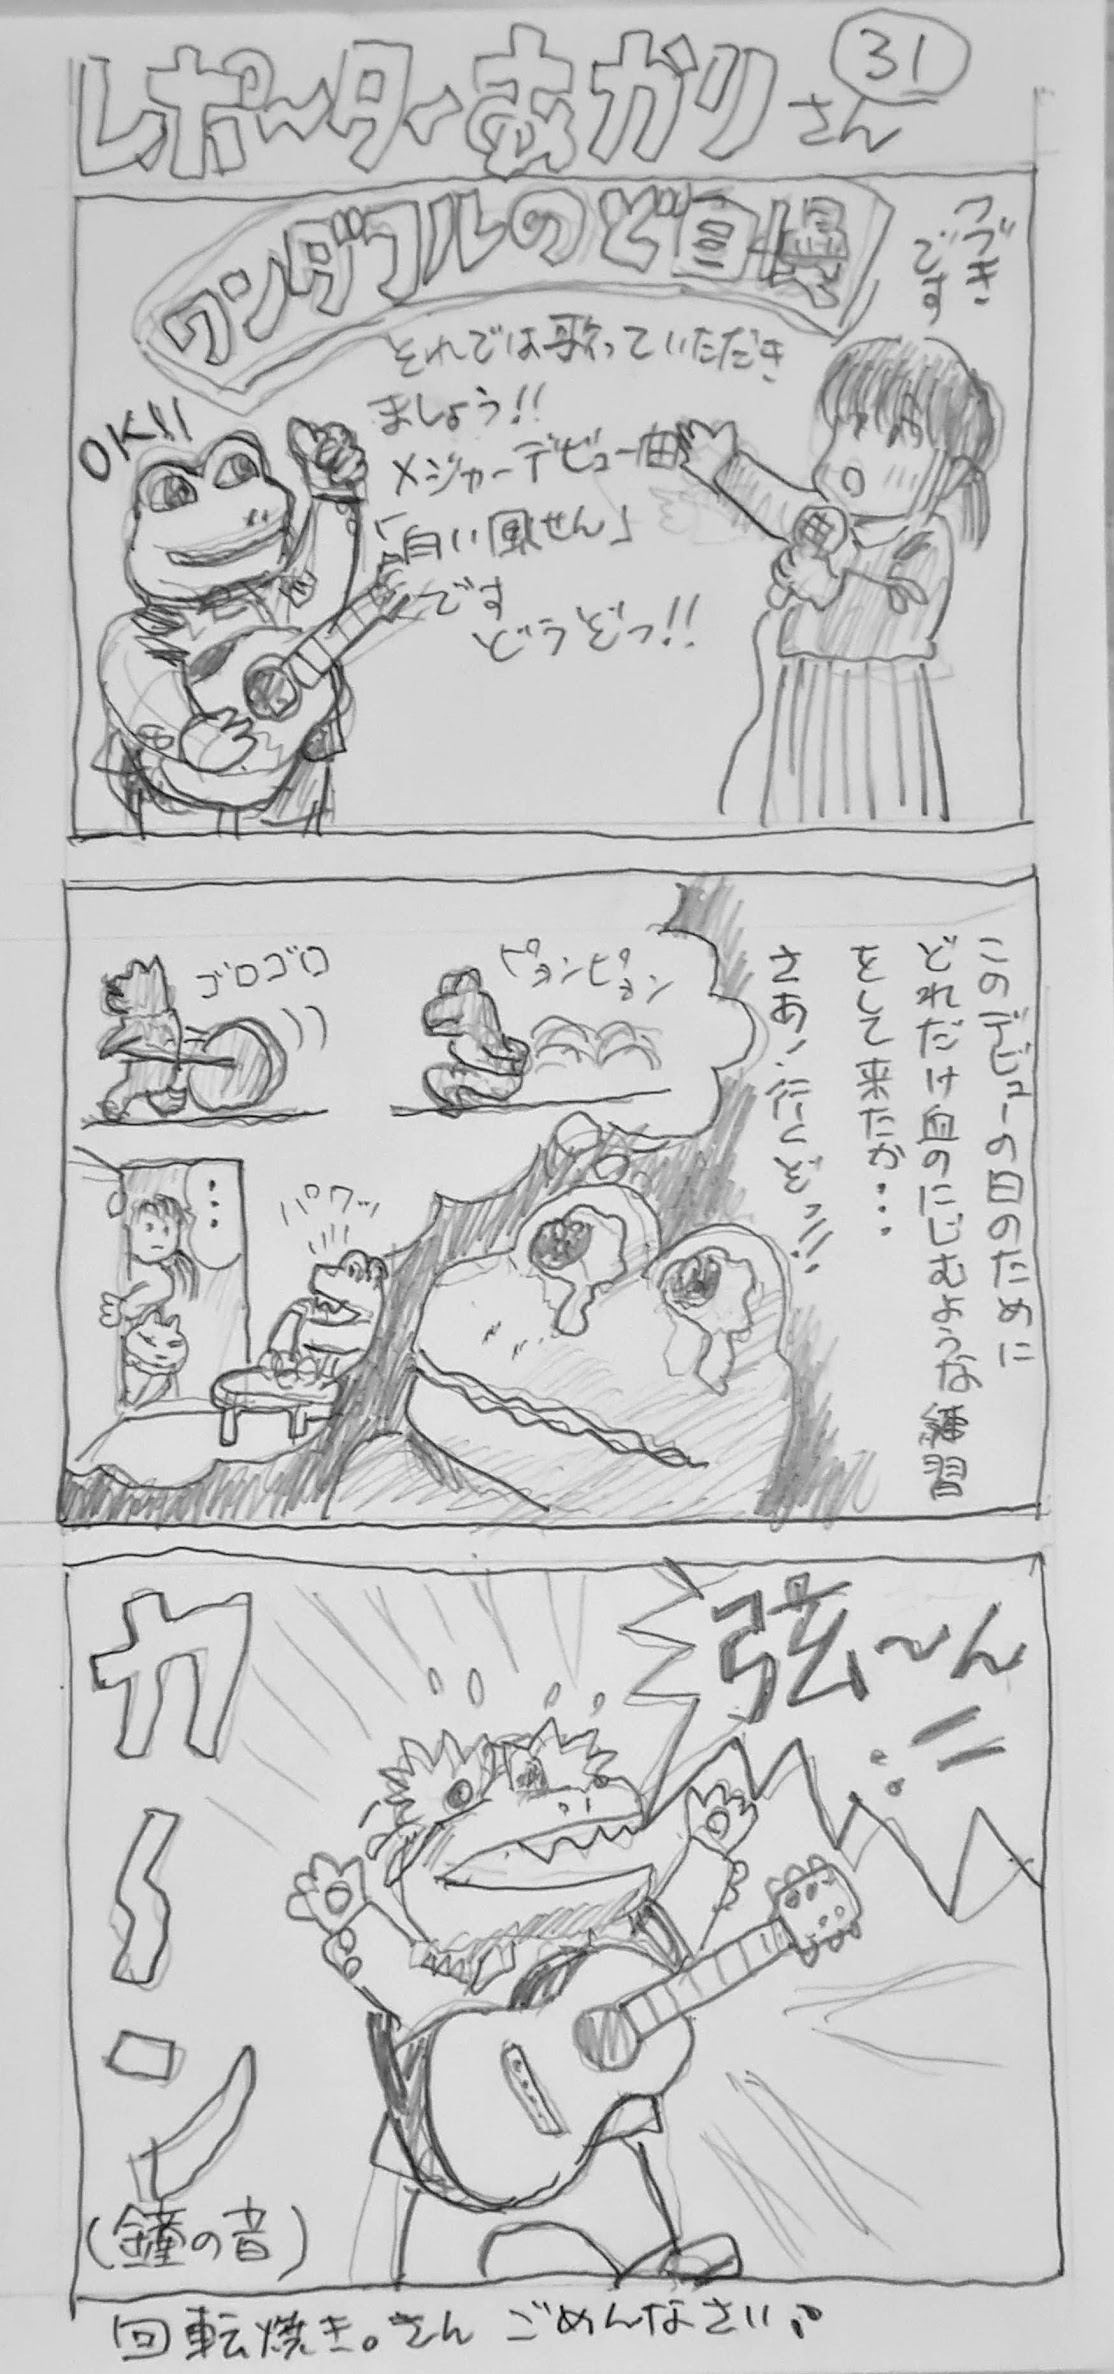 レポーターあかりさん
31
ワンダフルのど自慢
つづき
です
それでは歌っていただき
ましょう!!
メジャーデビュー曲
「白い風せん」
です
どうぞっ!!
OK!!
このデビューの日のために
どれだけ血のにじむような練習
をして来たか・・・
さあ!行くどっ!!
ピョンピョン
ゴロゴロ
パクッ
・・・
弦〜ん
カーン
(鐘の音)
回転焼き。さん ごめんなさい。